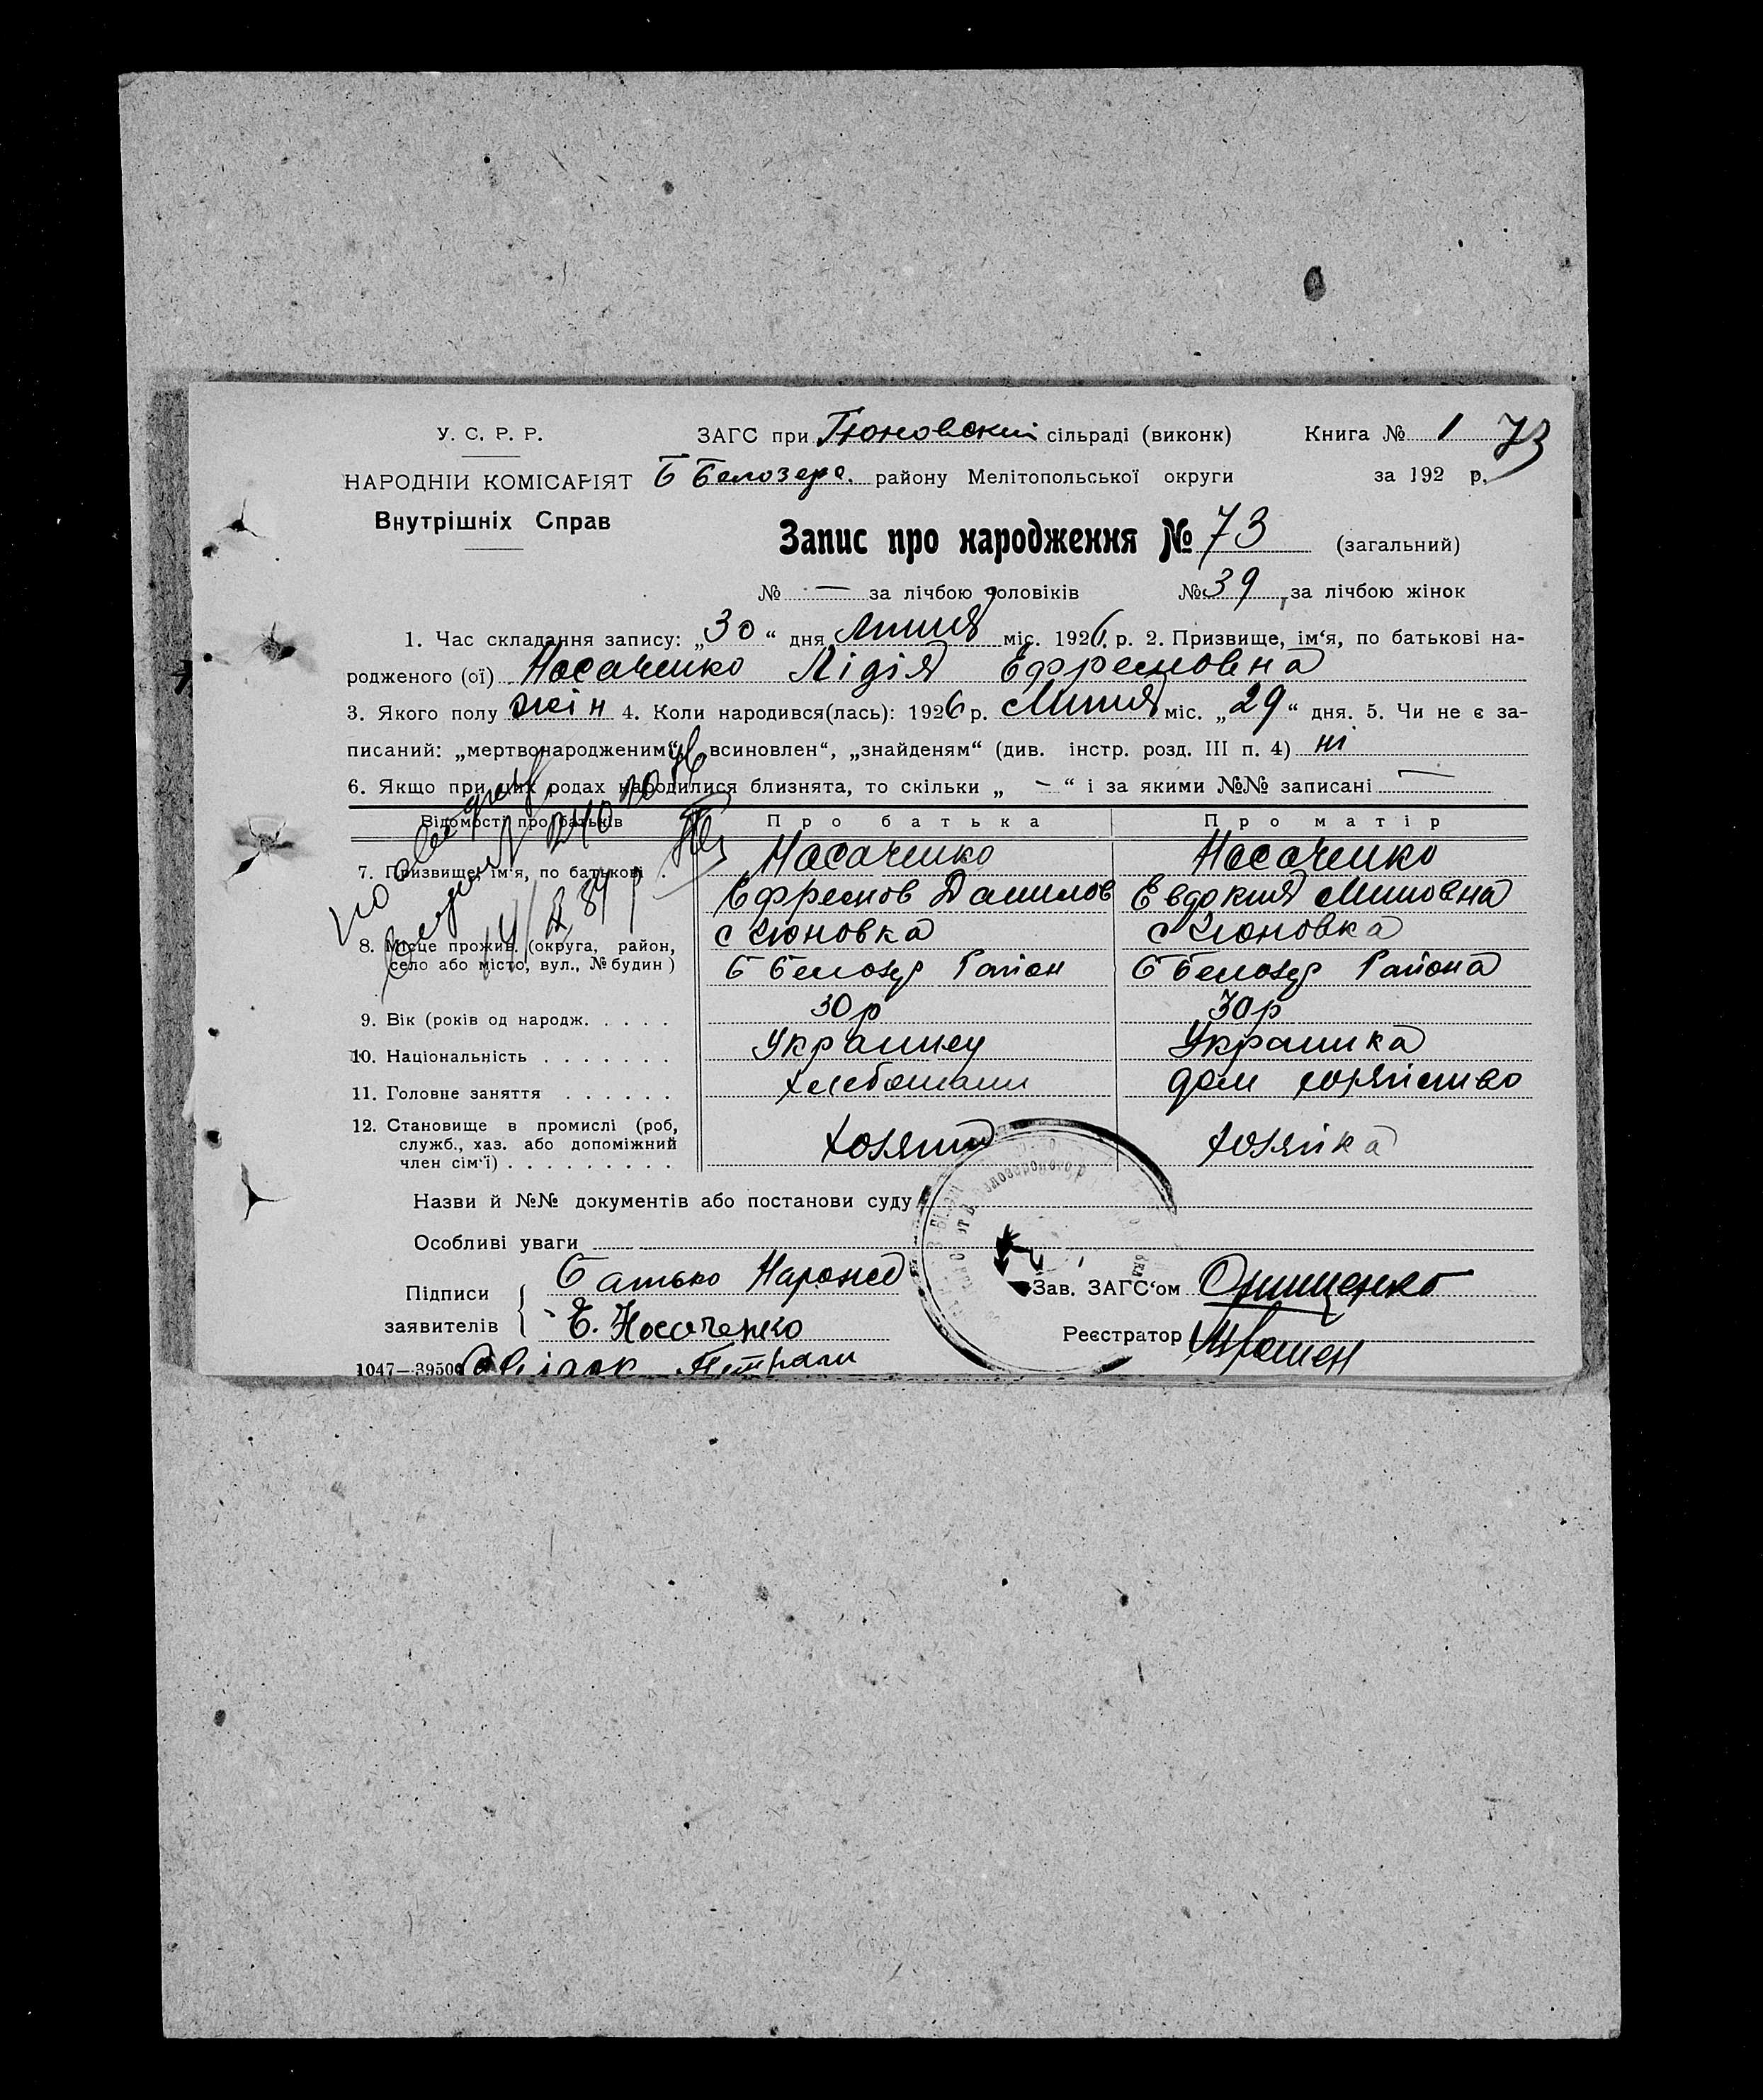 У. С. Р. Р.
ЗАГС при Гюновский сільраді (виконк) Книга № 1 73
НАРОДНІЙ КОМІСАРІЯТ Б Белозерс. району Мелітопольської округи за 192 р.
Внутрішніх Справ
Запис про народження № 73 (загальний)
№ — за лічбою чоловіків № 39 за лічбою жінок
1. Час складання запису: „30“ дня Липня міс. 1926 р. 2. Призвище, ім‘я, по батькові на-
родженого (ої) Насаченко Лідія Ефремовна
3. Якого полу жін 4. Коли народився(лась): 1926 р. Липня міс. „29“ дня. 5. Чи не є за-
писаний: „мертвонародженим“, „всиновлен“, „знайденям“ (див. інстр. розд. III п. 4) ні
6. Якщо при цих родах народилися близнята, то скільки „ — “ і за якими №№ записані —
Відомості про батьків Про батька Про матір
7. Призвище, ім‘я, по батькові . Насаченко Насаченко
Ефремов Данилов Евдокия Миновна
8. Місце прожив. (округа, район, с Гюновка с Гюновка
село або місто, вул., № будин) Б Белозер Район Б Белозер Района
9. Вік (років од народж. . . . . 30 р 30 р
10. Національність . . . . . . . Украинец Украинка
11. Головне заняття . . . . . . хлебопаш дом хозяйство
12. Становище в промислі (роб,
служб., хаз. або допоміжний хозяин хозяйка
член сім‘ї) . . . . . . . . .
Назви й №№ документів або постанови суду
Особливі уваги
Підписи Батько
заявителів Е. Носаченко
Зав. ЗАГС‘ом Онищенко
Реєстратор
1047—39500